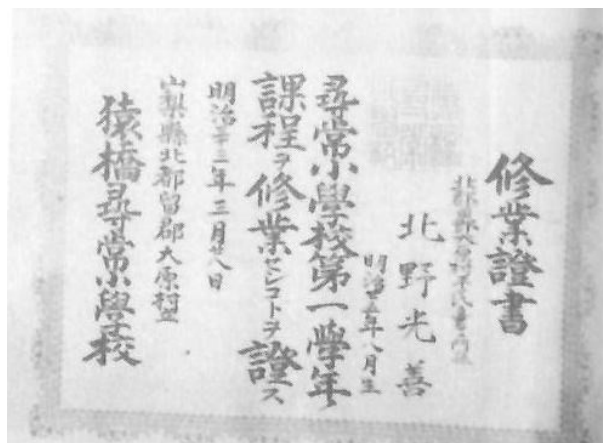 修業證書
北野光善
明治 年八月生
尋常小學校第一學年
課程ヲ修業セシコトヲ證ス
明治 三年三月 八日
山梨縣北都留郡大原村立
猿橋尋常小學校